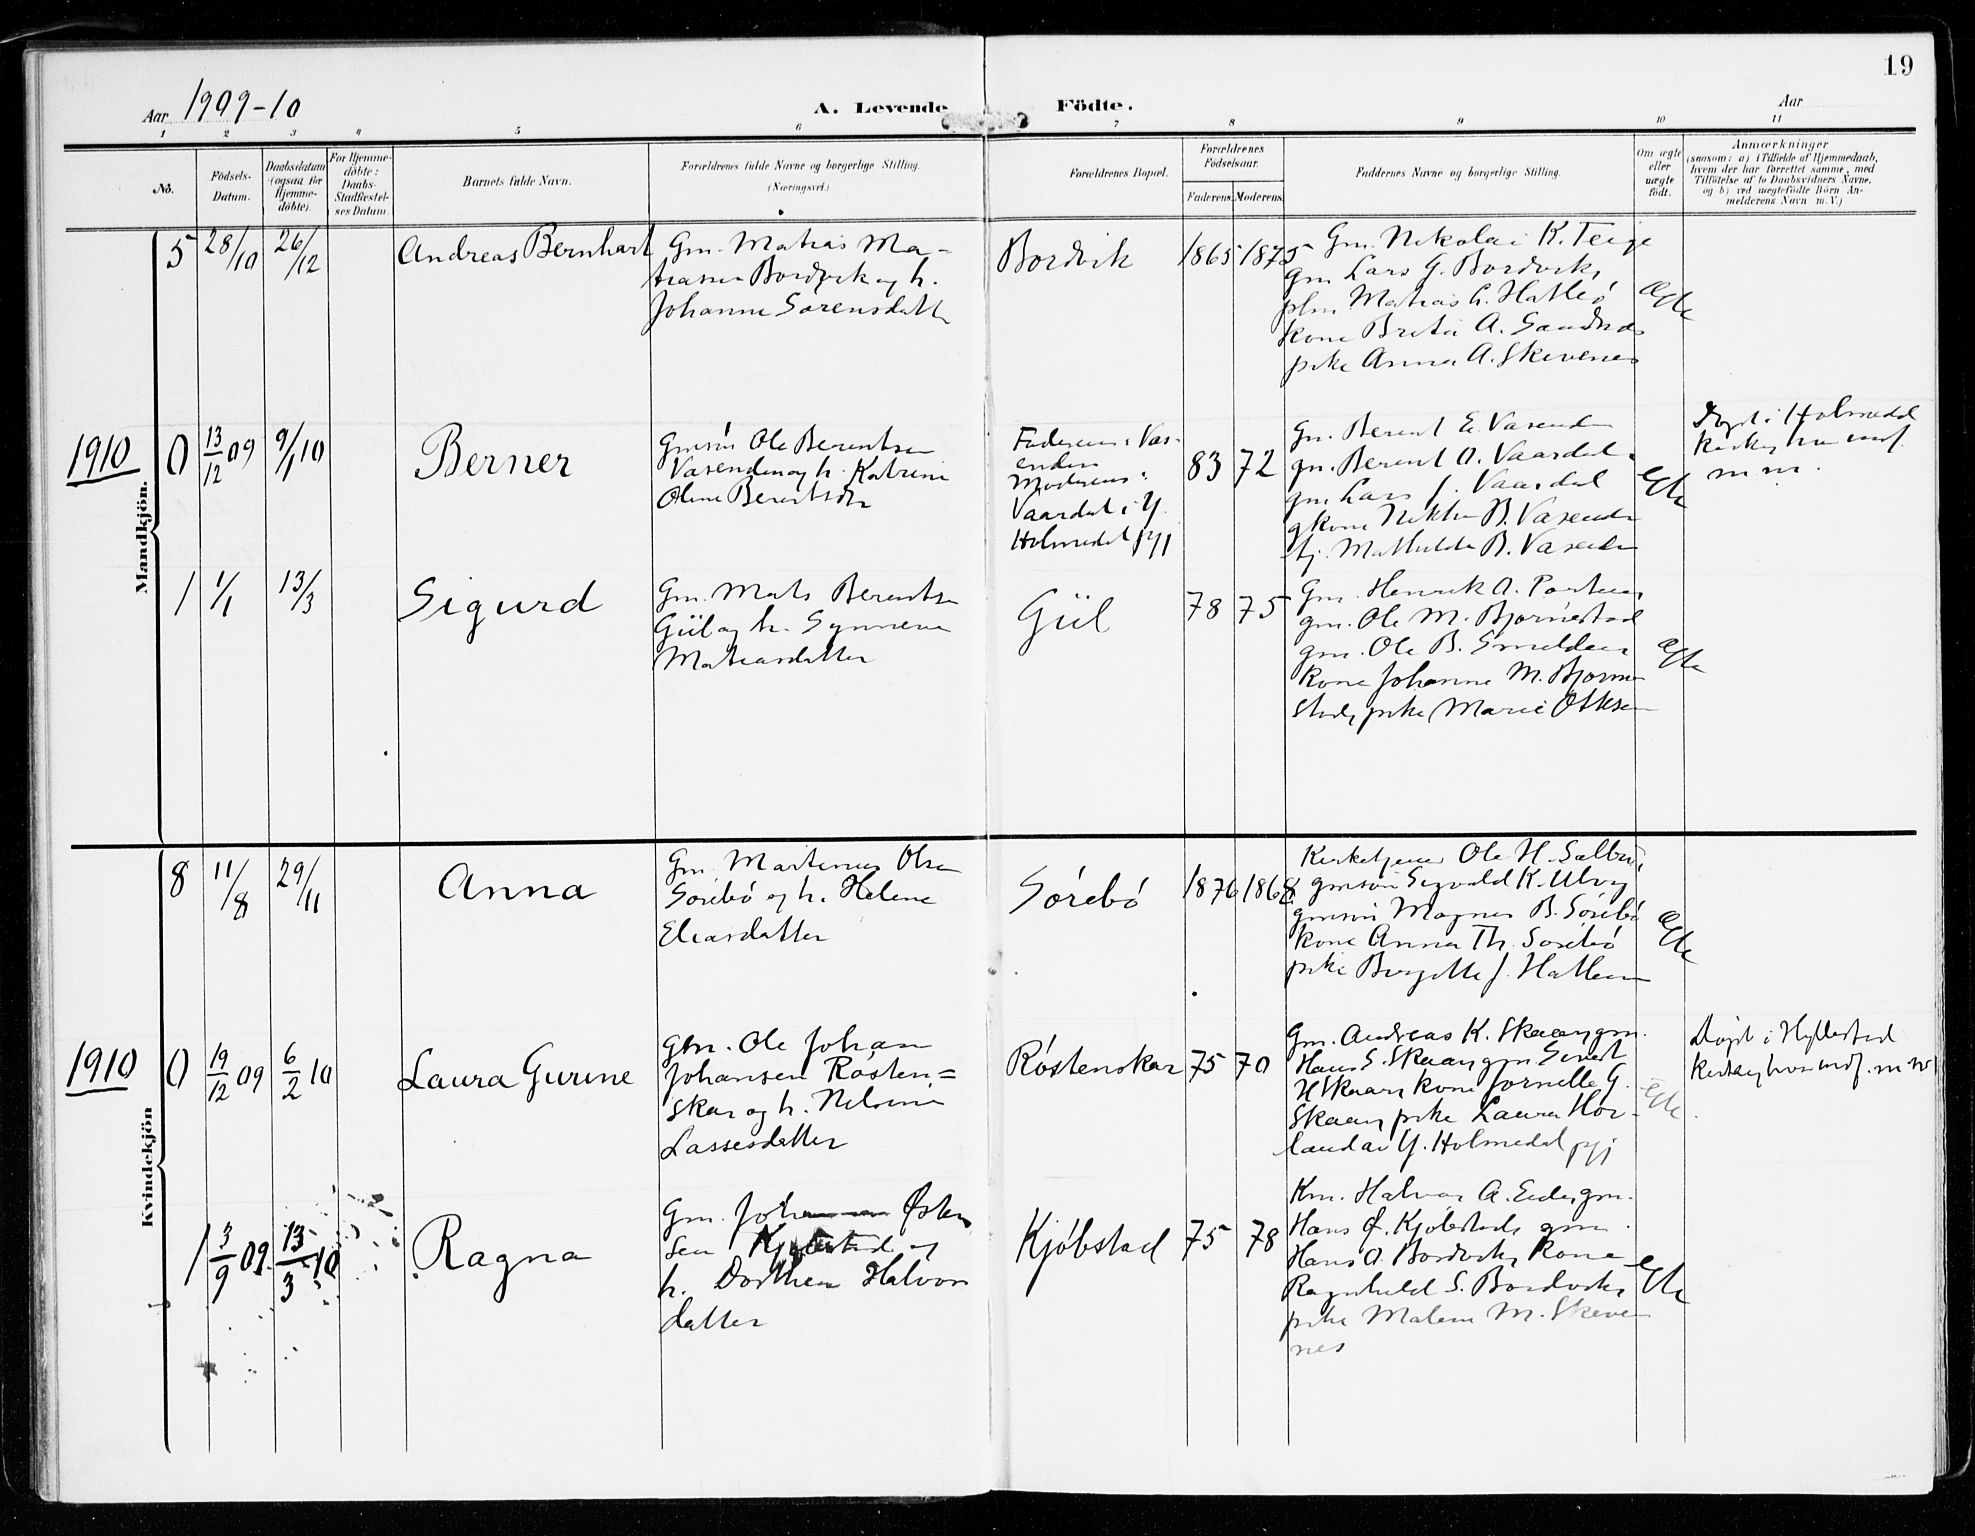 19
Aar 1909-10
A. Levende Födte.
Aar
1 2 3 4 5 6 7 8 9 10 11
No.
Födsels-
Datum.
Daabsdatum
(ogsaa for
Hjemme-
döbte).
For Hjemme-
döbte:
Daabs-
Stadfæstel-
ses Datum.
Barnets fulde Navn.
Forældrenes fulde Navne og borgerlige Stilling.
(Næringsvei.)
Forældrenes Bopæl.
Forældrenes
Födselsaar.
Faderens. Moderens.
Faddernes Navne og borgerlige Stilling.
Om ægte
eller
uægte
födt.
Anmærkninger
(saasom: a) i Tilfælde af Hjemmedaab,
hvem der har forrettet samme, med
Tilföielse af to Daabsvidners Navne,
og b) ved uægtefödte Börn An-
melderens Navn m. V.)
Mandkjön.
5 28/10 26/12
Andreas Bernhart
Gm. Matias Ma-
tiassen Bordvik og h.
Johanne Sørensdatt
Bordvik
1865 1875
Gm. Nikolai K. Teige
gm Lars G. Bordvik,
plm Matias h. Hatlø
kone Brita A. Sandnæs
pike Anna A. Skivenes
ægte
1910
0 13/12 09 9/1 10
Berner
Gmsøn Ole Berentsen
Vasenden og h. Katrine
Oline Berentsdtr
Faderens: Vas-
enden
Moderens:
Vaardal i Y.
Holmedal pgj
83 72
Gm. Berent E. Vasenden
gm. Berent A. Vaardal
gm Lars J. Vaardal
gkone Nikka B. Vasenden
tj. Mathilda B. Vasenden
egte
Døpt i Holmedal
kirke,
m m.
1 1/1 13/3
Sigurd
Gm. Mats Berentsen
Giil og h. Synneva
Matiasdatter
Giil
78 75
Gm. Henrik A.
gm. Ole M. Bjørnestad
gm. Ole B. Smelden
kone Johanne M. Bjørne-
stad, pike Marie Ottesen
ægte
Kvindekjön
8 11/8 29/11
Anna
Gm. Martinus Olsen
Sørebø og h. Helene
Eliasdatter
Sørebø
1876 1868
Kirketjener Ole H. Salbu,
gmsøn Sigvald K. Ulvøy
gmsøn Magnus B. Sørebø
kone Anna Th. Sørebø
pike Birgitte J. Hatlem
ægte
1910
0 19/12 09 6/2 10
Laura Gurine
Gm. Ole Johan
Johansen Røsten=
skar og h. Nilsine
Lassesdatter
Røstenskar
75 70
Gm. Andreas K. Skaar, gm.
Hans S. Skaar, gm Sivert
H Skaar, kone Jornelle G.
Skaar, pike Laura Hov-
land av Y. Holmedal pgj
egte
Døpt i Hyllestad
kirke,
1 3/9 09. 13/3 10
Ragna
Gm. Johan Østen
sen Kjøbstad og
h. Dorthea Halvors
datter
Kjøbstad
75 78
Km. Halvor A. Eide, gm.
Hans Ø. Kjøbstad, gm.
Hans A. Bordvik, kone
Ragnhild S. Bordvik,
pike Malene M. Skive-
nes
egte